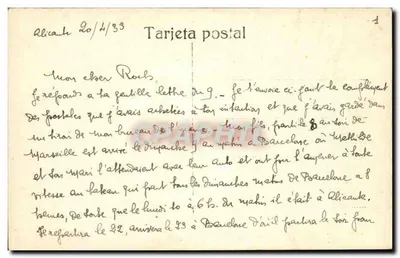 Alicante 20/4/33
Tarjeta postal
1
Mon cher Roels.
Je réponds a ta gentille lettre du 9 - Je t'envoie ci-joint le complément
des postales que j'avais achetées à ton intention et que j'avais gardé dans
un tiroir de mon bureau de parti le 8 au soir de
Marseille est arrivé le dimanche 9 au matin à Barcelone où
et son mari l'attendaient avec leur auto et ont pour l'amener à toute
vitesse au bateau qui part tous les dimanches matins de Barcelone a 8
heures, de sorte que le lundi 10 à 6 h. du matin il était à Alicante.
Je repartira le 22, arrivera le 23 à Barcelone d'où il partira le soir pour